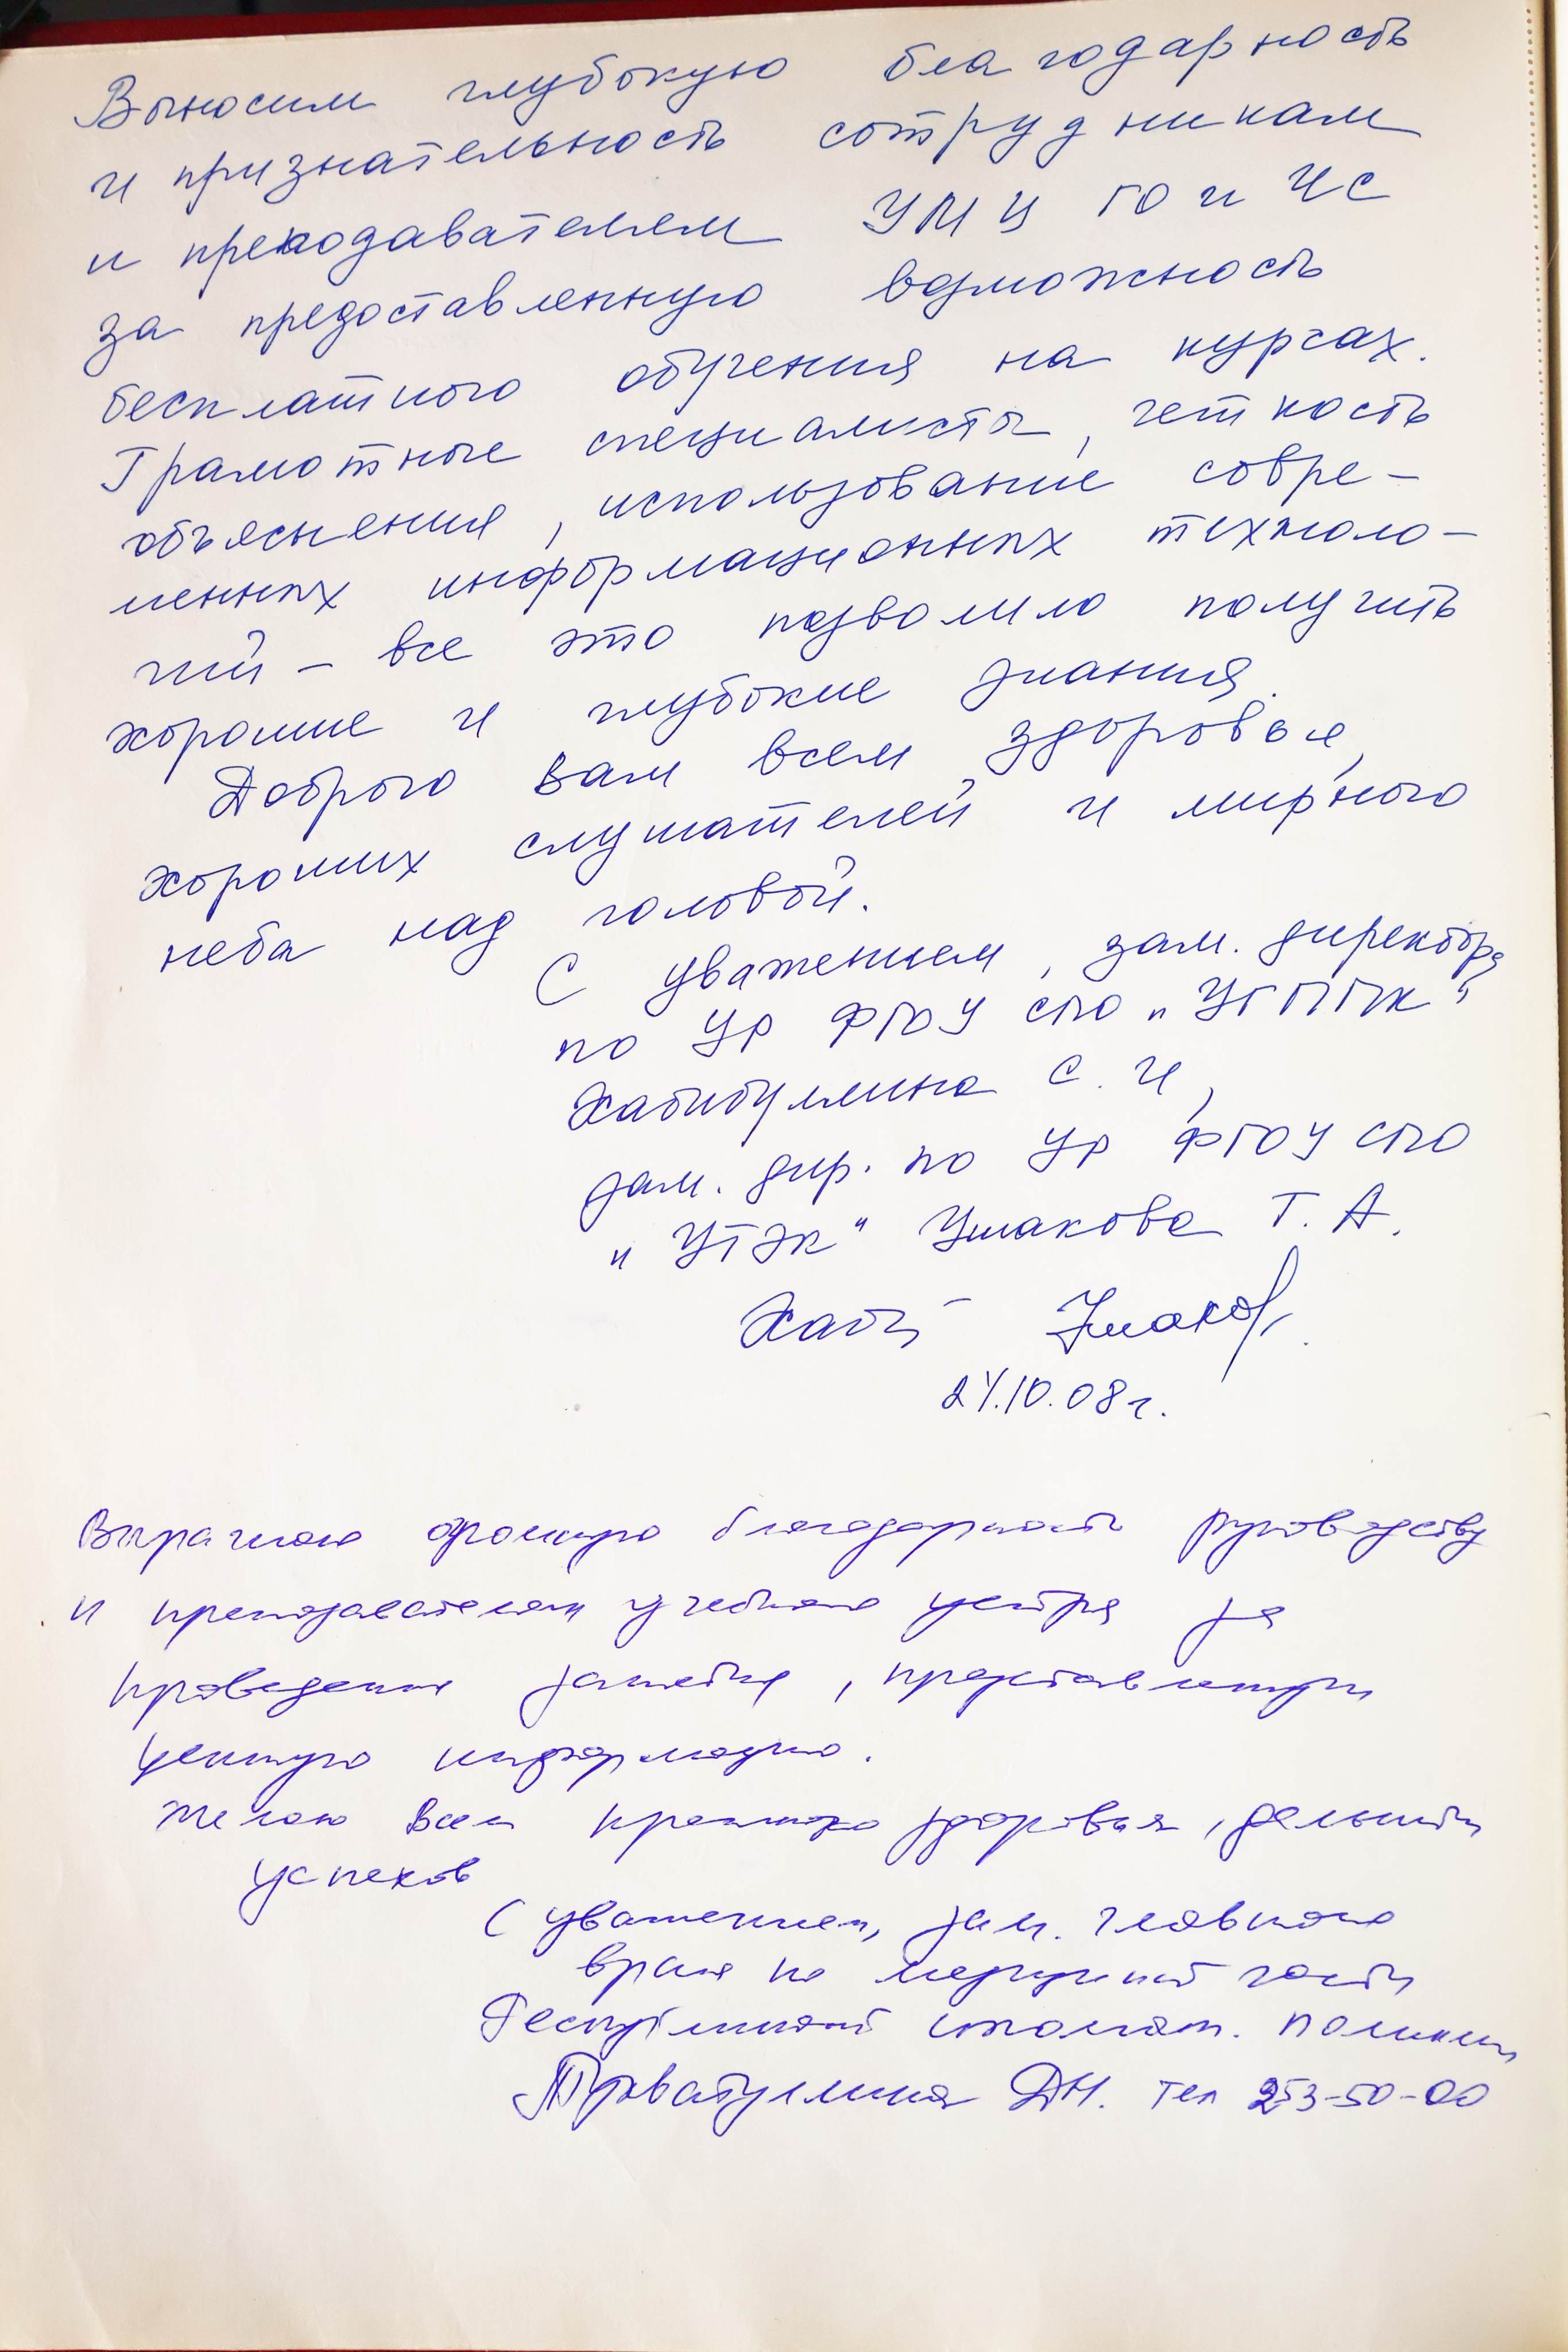 Выносим глубокую благодарность
и признательность сотрудникам
и преподавателям УМЦ ГО и ЧС
за предоставленную возможность
бесплатного обучения на курсах.
Грамотные специалисты, четкость
объяснения, использование совре-
менных информационных техноло-
гий - все это позволило получить
хорошие и глубокие знания.
Доброго вам всем здоровья,
хороших слушателей и мирного
неба над головой.
С уважением, зам. директора
по УР ФГОУ СПО "УГППК"
Хабибуллина С. И,
зам. дир. по УР ФГОУ СПО
"УТЭК" Ушакова Т. А.
Хаб Ушаков
24.10.08г.
Выражаю огромную благодарность руководству
и преподавателям учебного центра за
проведение занятия, предоставленную
ценную информацию.
Желаю Всем крепкого здоровья, дальнейших
успехов
С уважением, зам. главного
врача по медицинской части
Республиканской стоматол. поликлин
Д.Н. тел 253-50-00